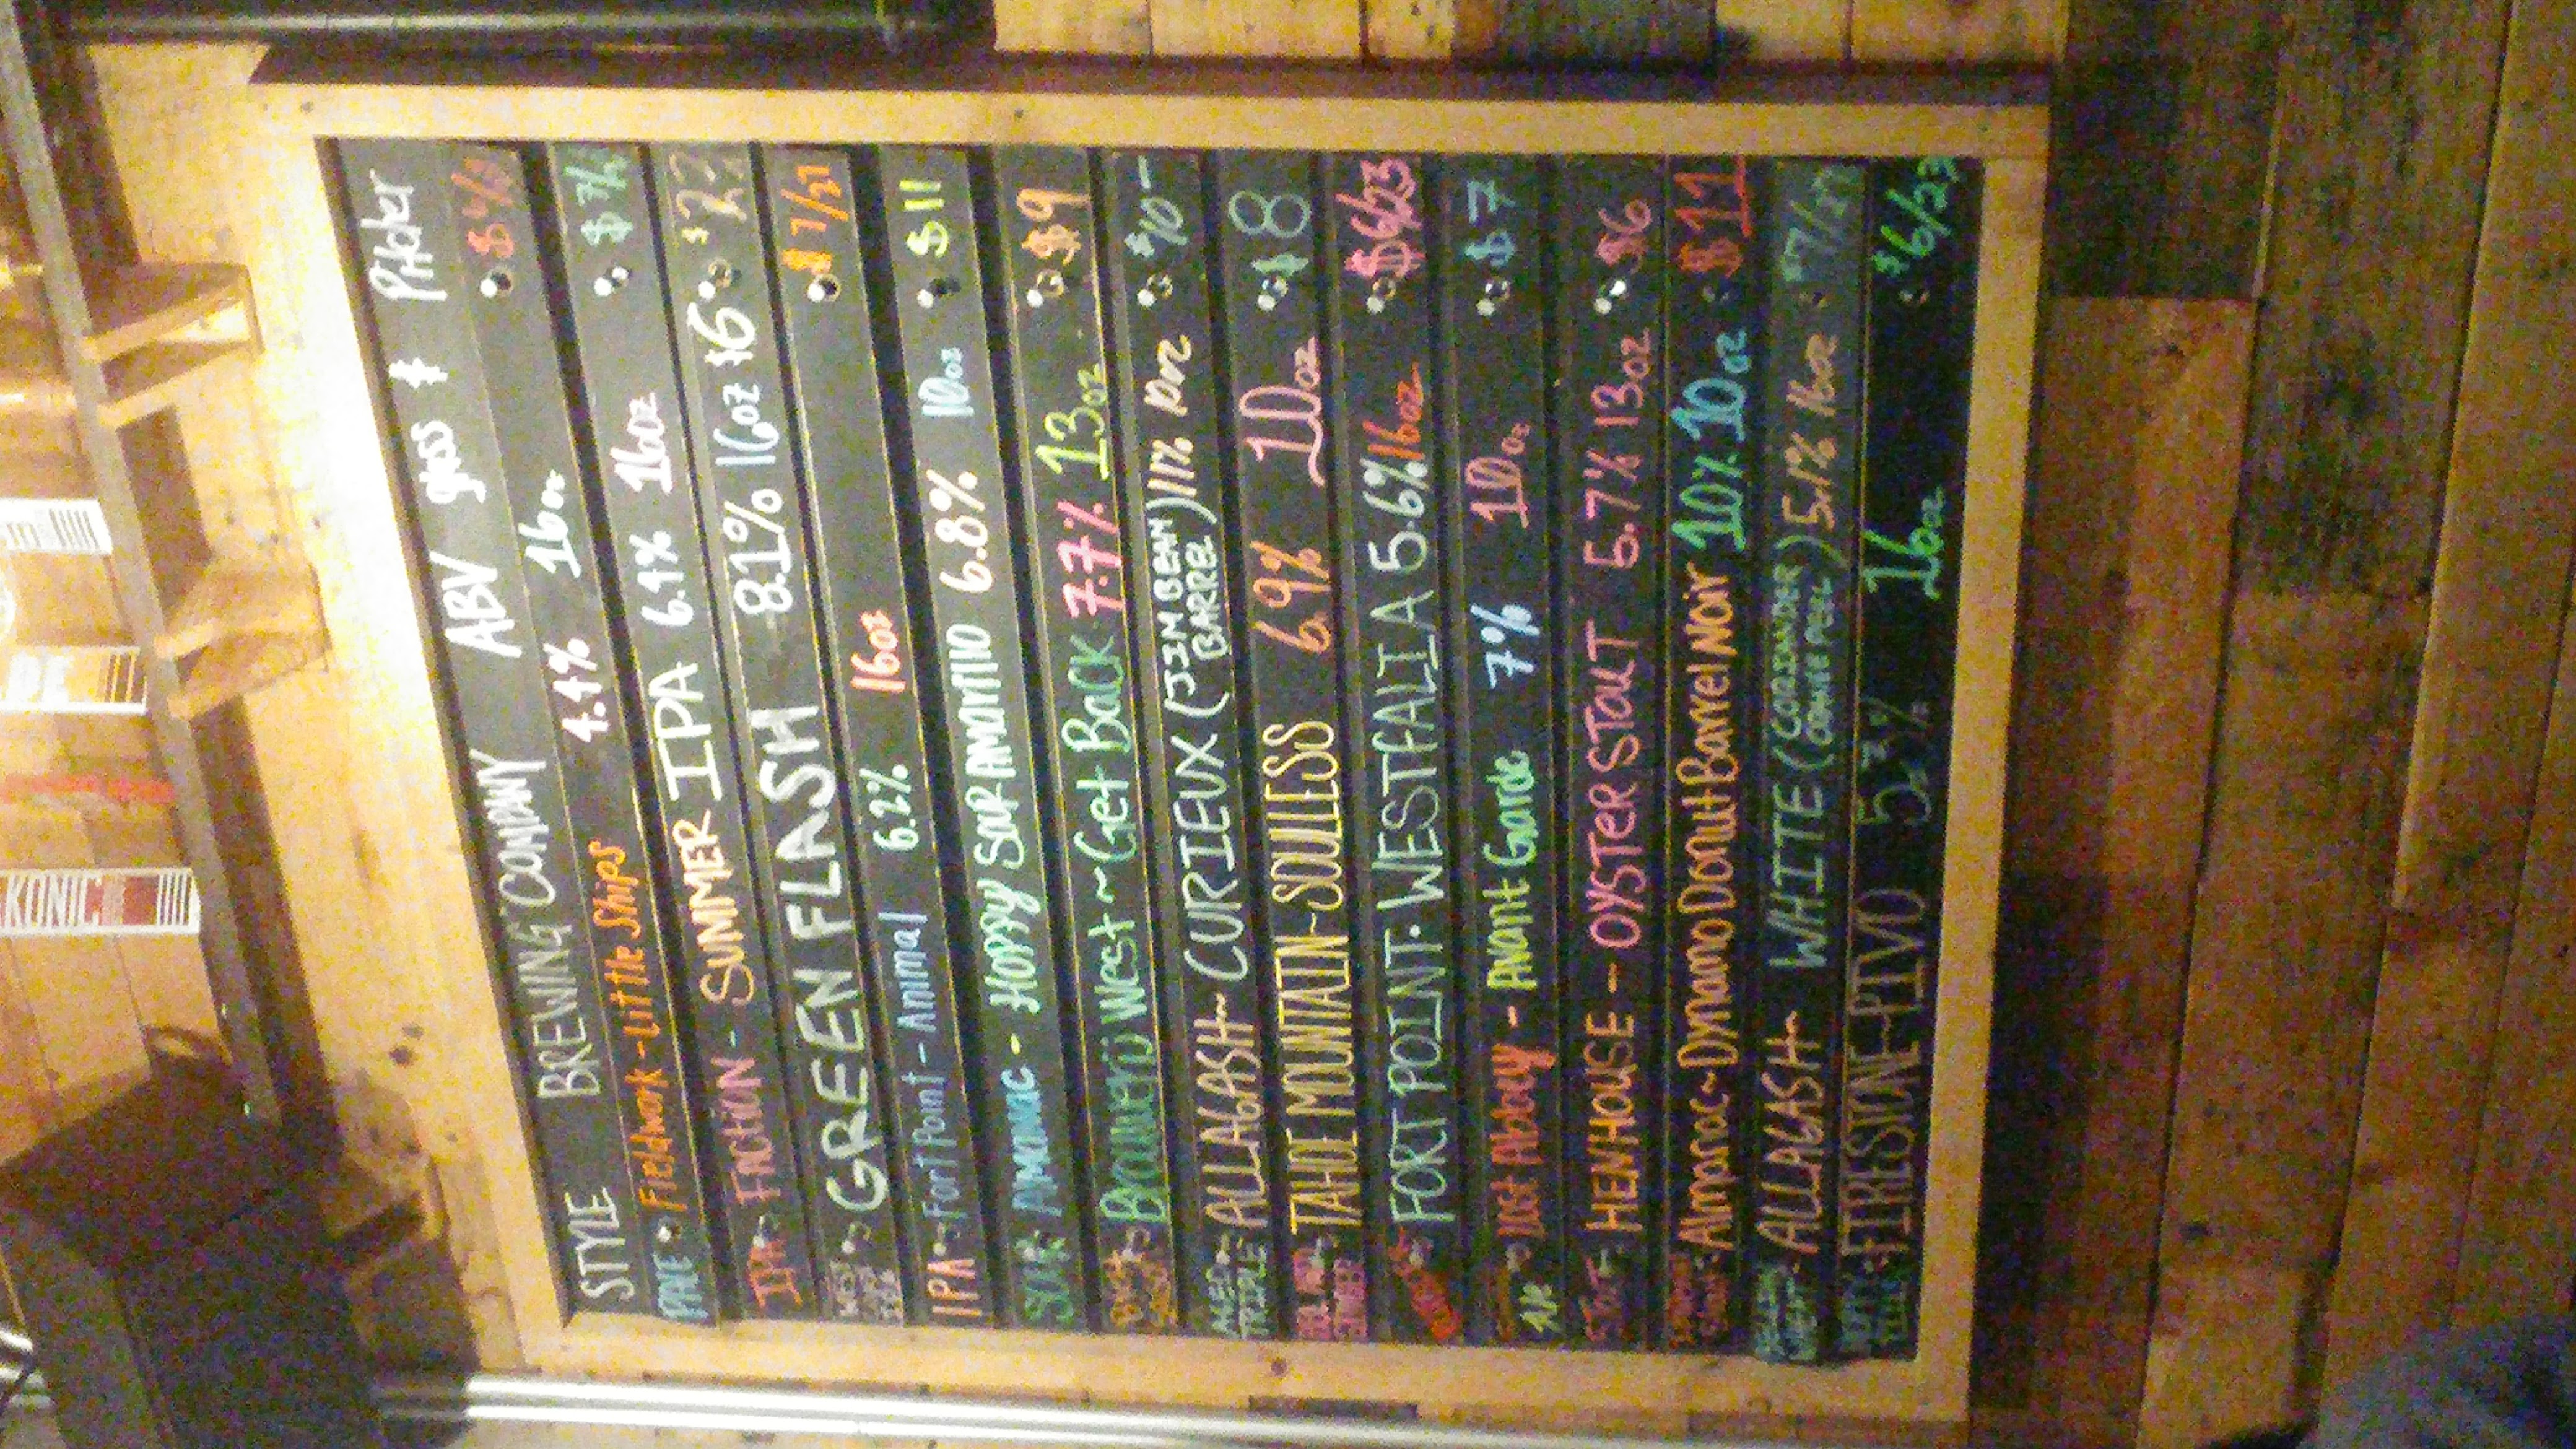 STYLE BREWING COMPANY ABV glass $ Pitcher
PALE Fieldwork - Little Ships 4.4% 16oz
IPA Faction - SUMMER IPA 6.4% 16oz $7/
WEST COAST IPA GREEN FLASH 8.1% 16oz $6
IPA Fort Point - Animal 6.2% 16oz $7/27
SOUR Almanac - Hoppy Sour Amarillo 6.8% 10oz $11
Brouwerij West ~ Get Back 7.7% 13oz $9
AGED TRIPLE ALLAGASH ~ CURIEUX (JIM BEAM BARREL) 11% 10oz $10-
TAHOE MOUNTAIN ~ SOULLESS 6.9% 10oz $8
FORT POINT - WESTFALIA 5.6% 16oz $6/23
Ale Lost Abbey - Avant Garde 7% 10oz $7
STOUT HENHOUSE - OYSTER STOUT 5.7% 13oz $6
Almanac ~ Dynamo Donut Barrel Noir 10% 10oz $11
WHEAT ALLAGASH ~ WHITE (CORIANDER ORANGE PEEL) 5.1% 16oz $7/27
HOPPY PILS FIRESTONE ~ PIVO 16oz $6/23